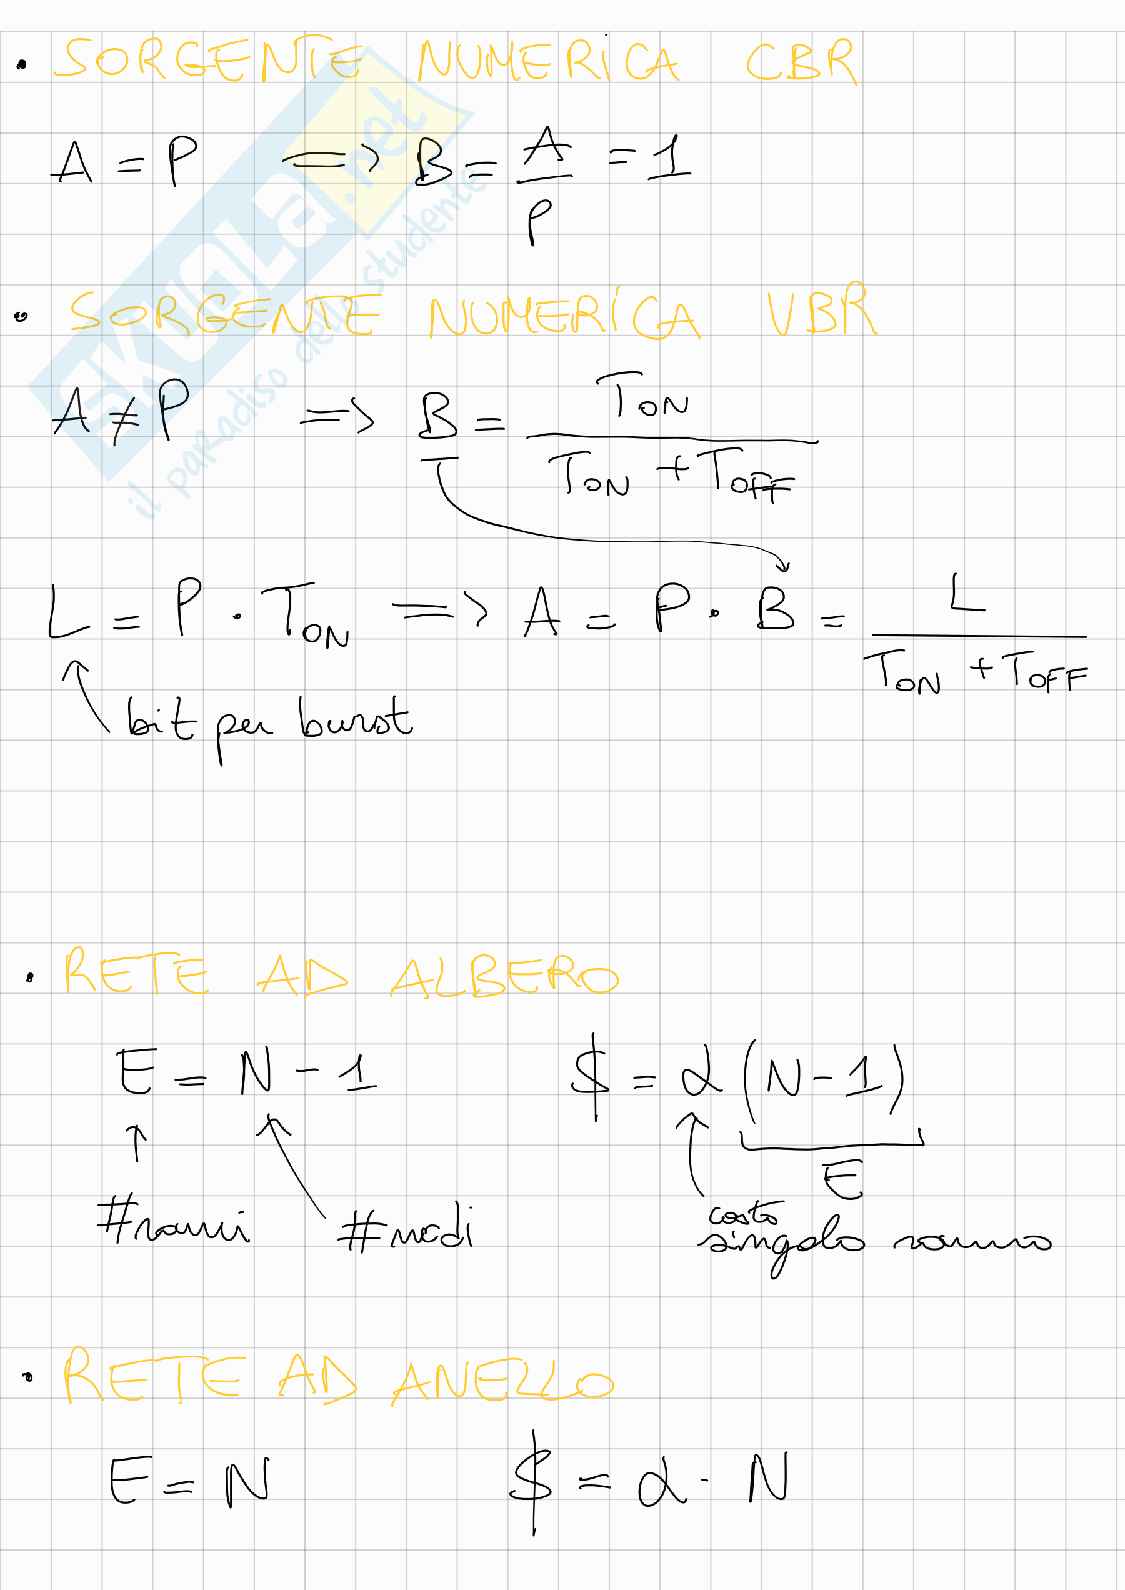 • SORGENTE NUMERICA CBR
A = P => B = A / P = 1
• SORGENTE NUMERICA VBR
A ≠ P => B = T_ON / (T_ON + T_OFF)
L = P · T_ON => A = P · B = L / (T_ON + T_OFF)
bit per burst
• RETE AD ALBERO
E = N - 1 $ = α (N - 1)
E
#rami #nodi costo
singolo ramo
• RETE AD ANELLO
E = N $ = α · N
SKUOLA.net
il paradiso dello studente